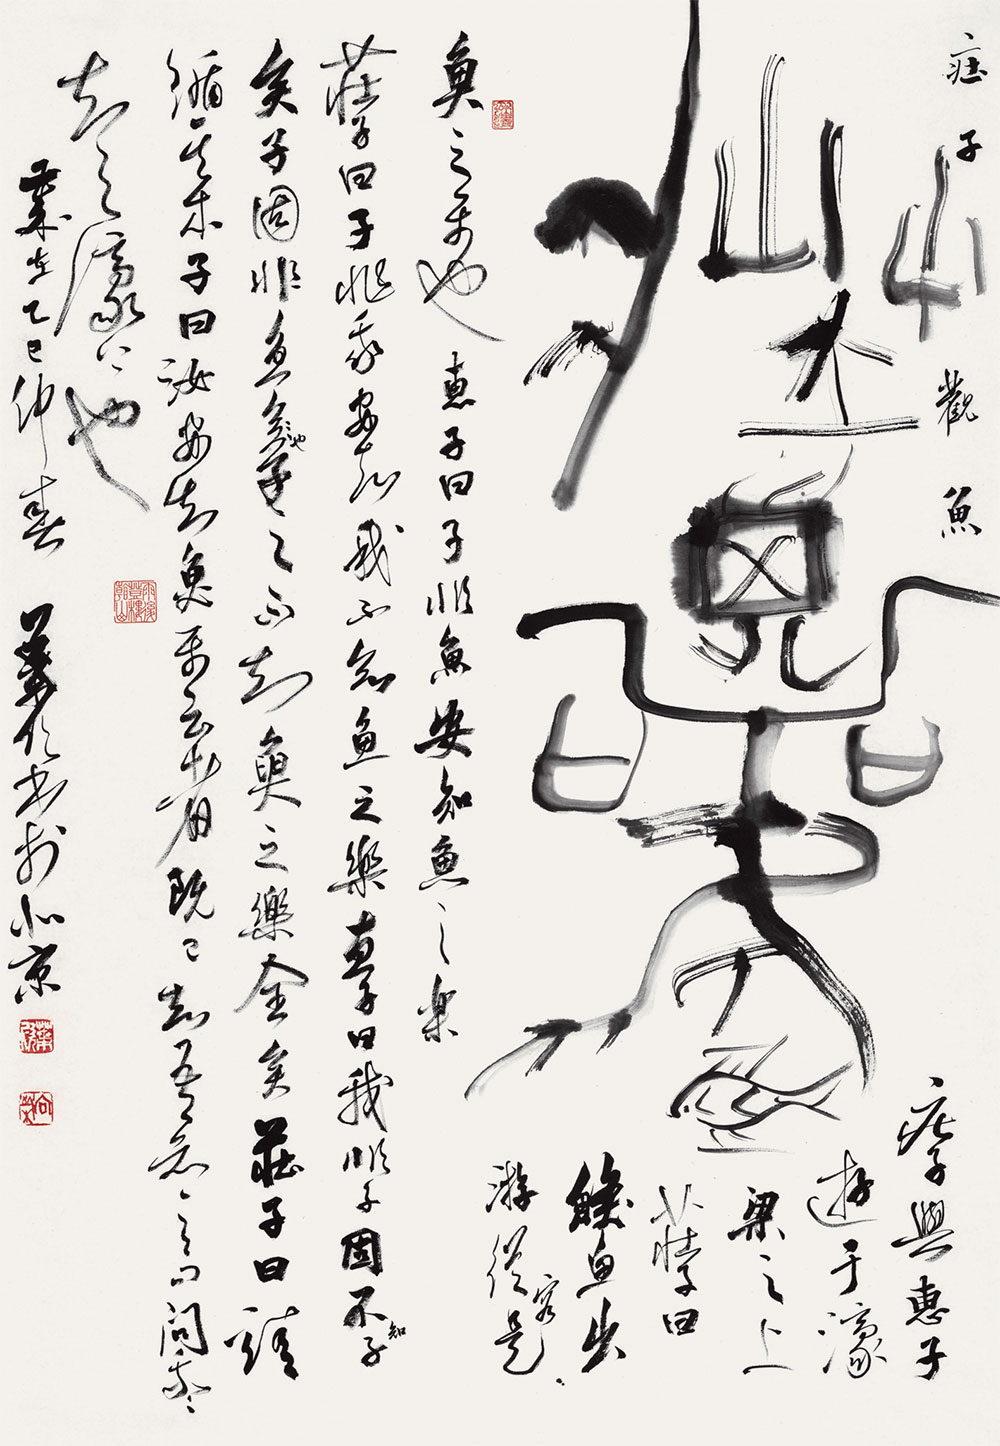 莊子觀魚
莊子與惠子
遊于濠
梁之上
莊子曰
鯈魚出
游從容是
魚之樂也 惠子曰子非魚安知魚之樂
莊子曰子非我安知我不知魚之樂惠子曰我非子固不知子
矣子固非魚矣也子之不知魚之樂全矣莊子曰請
循其本子曰汝安知魚樂云者既已知吾知之而問我我
知之濠上也
歲在乙巳仲春 葉 書於北京